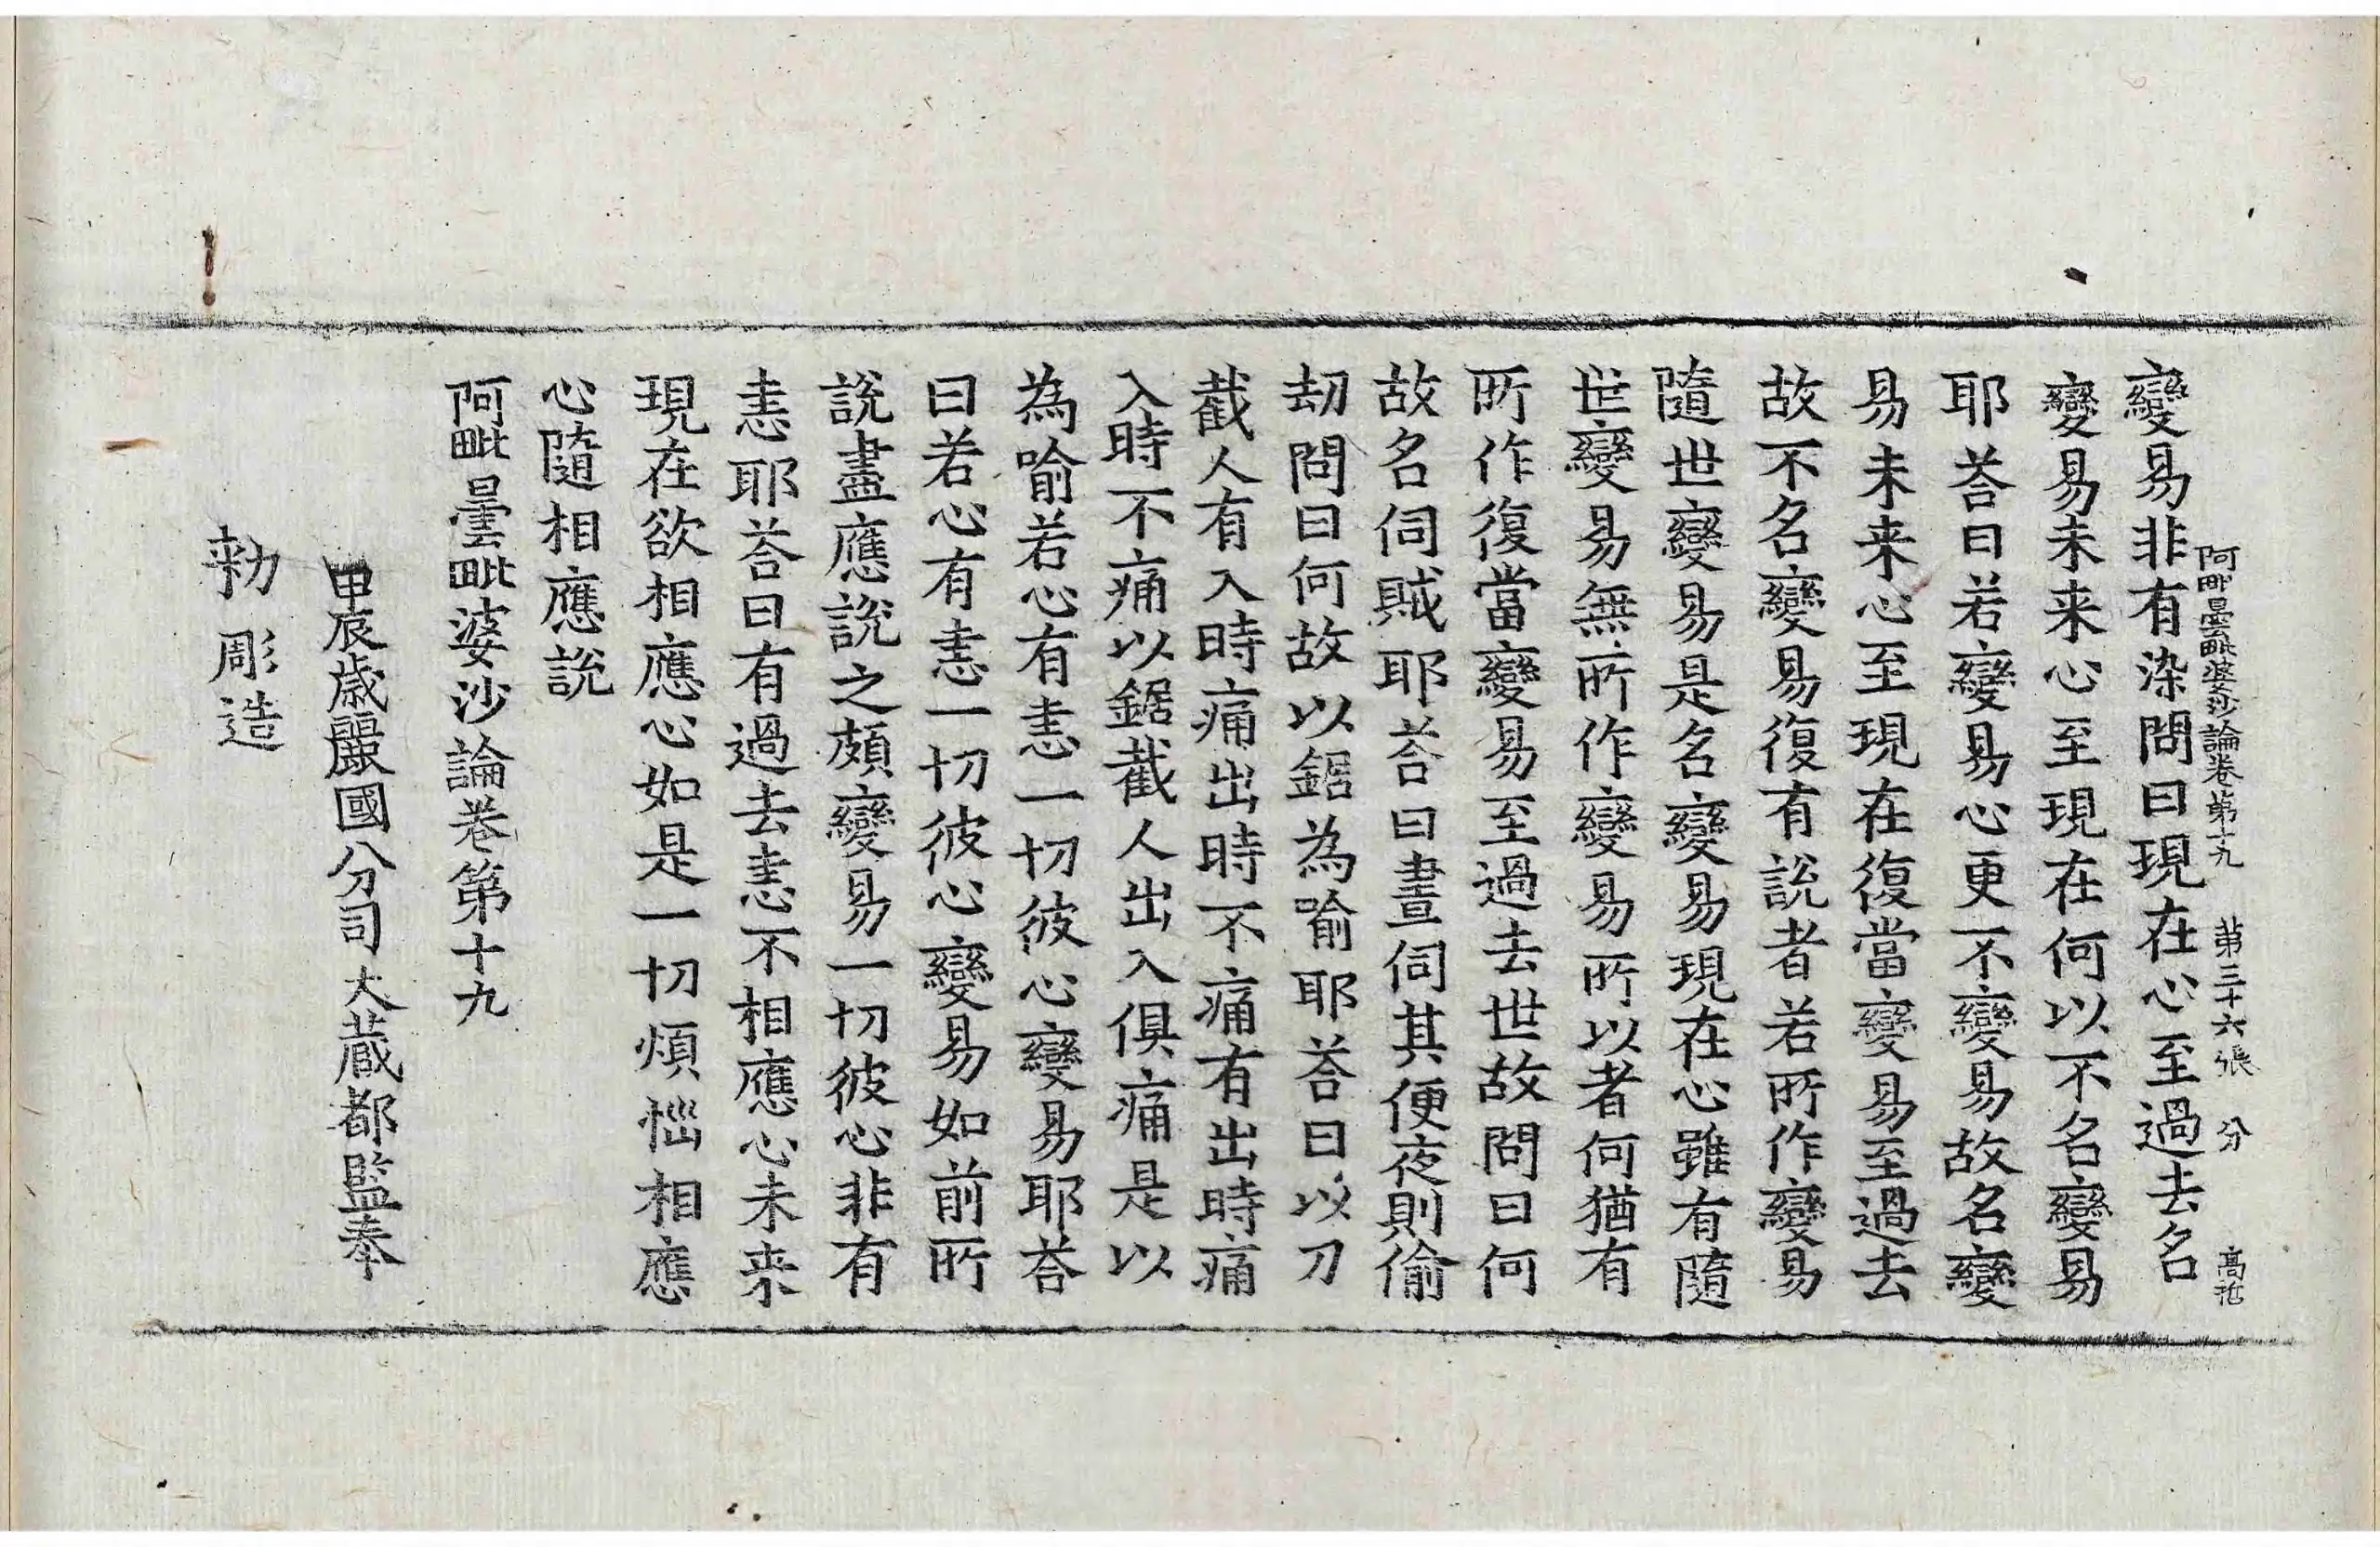 阿毗曇毗婆沙論卷第十九 第三十六張 分 高
變易非有染問曰現在心至過去名
變易未来心至現在何以不名變易
耶荅曰若變易心更不變易故名變
易未来心至現在復當變易至過去
故不名變易復有說者若所作變易
隨世變易是名變易現在心雖有隨
世變易無所作變易所以者何猶有
所作復當變易至過去世故問曰何
故名伺賊耶荅曰晝伺其便夜則偷
劫問曰何故以鋸為喻耶荅曰以刀
截人有入時痛出時不痛有出時痛
入時不痛以鋸截人出入俱痛是以
為喻若心有恚一切彼心變易耶荅
曰若心有恚一切彼心變易如前所
說盡應說之頗變易一切彼心非有
恚耶荅曰有過去恚不相應心未来
現在欲相應心如是一切煩惱相應
心隨相應說
阿毗曇毗婆沙論卷第十九
甲辰歲麗國分司大藏都監奉
勑彫造